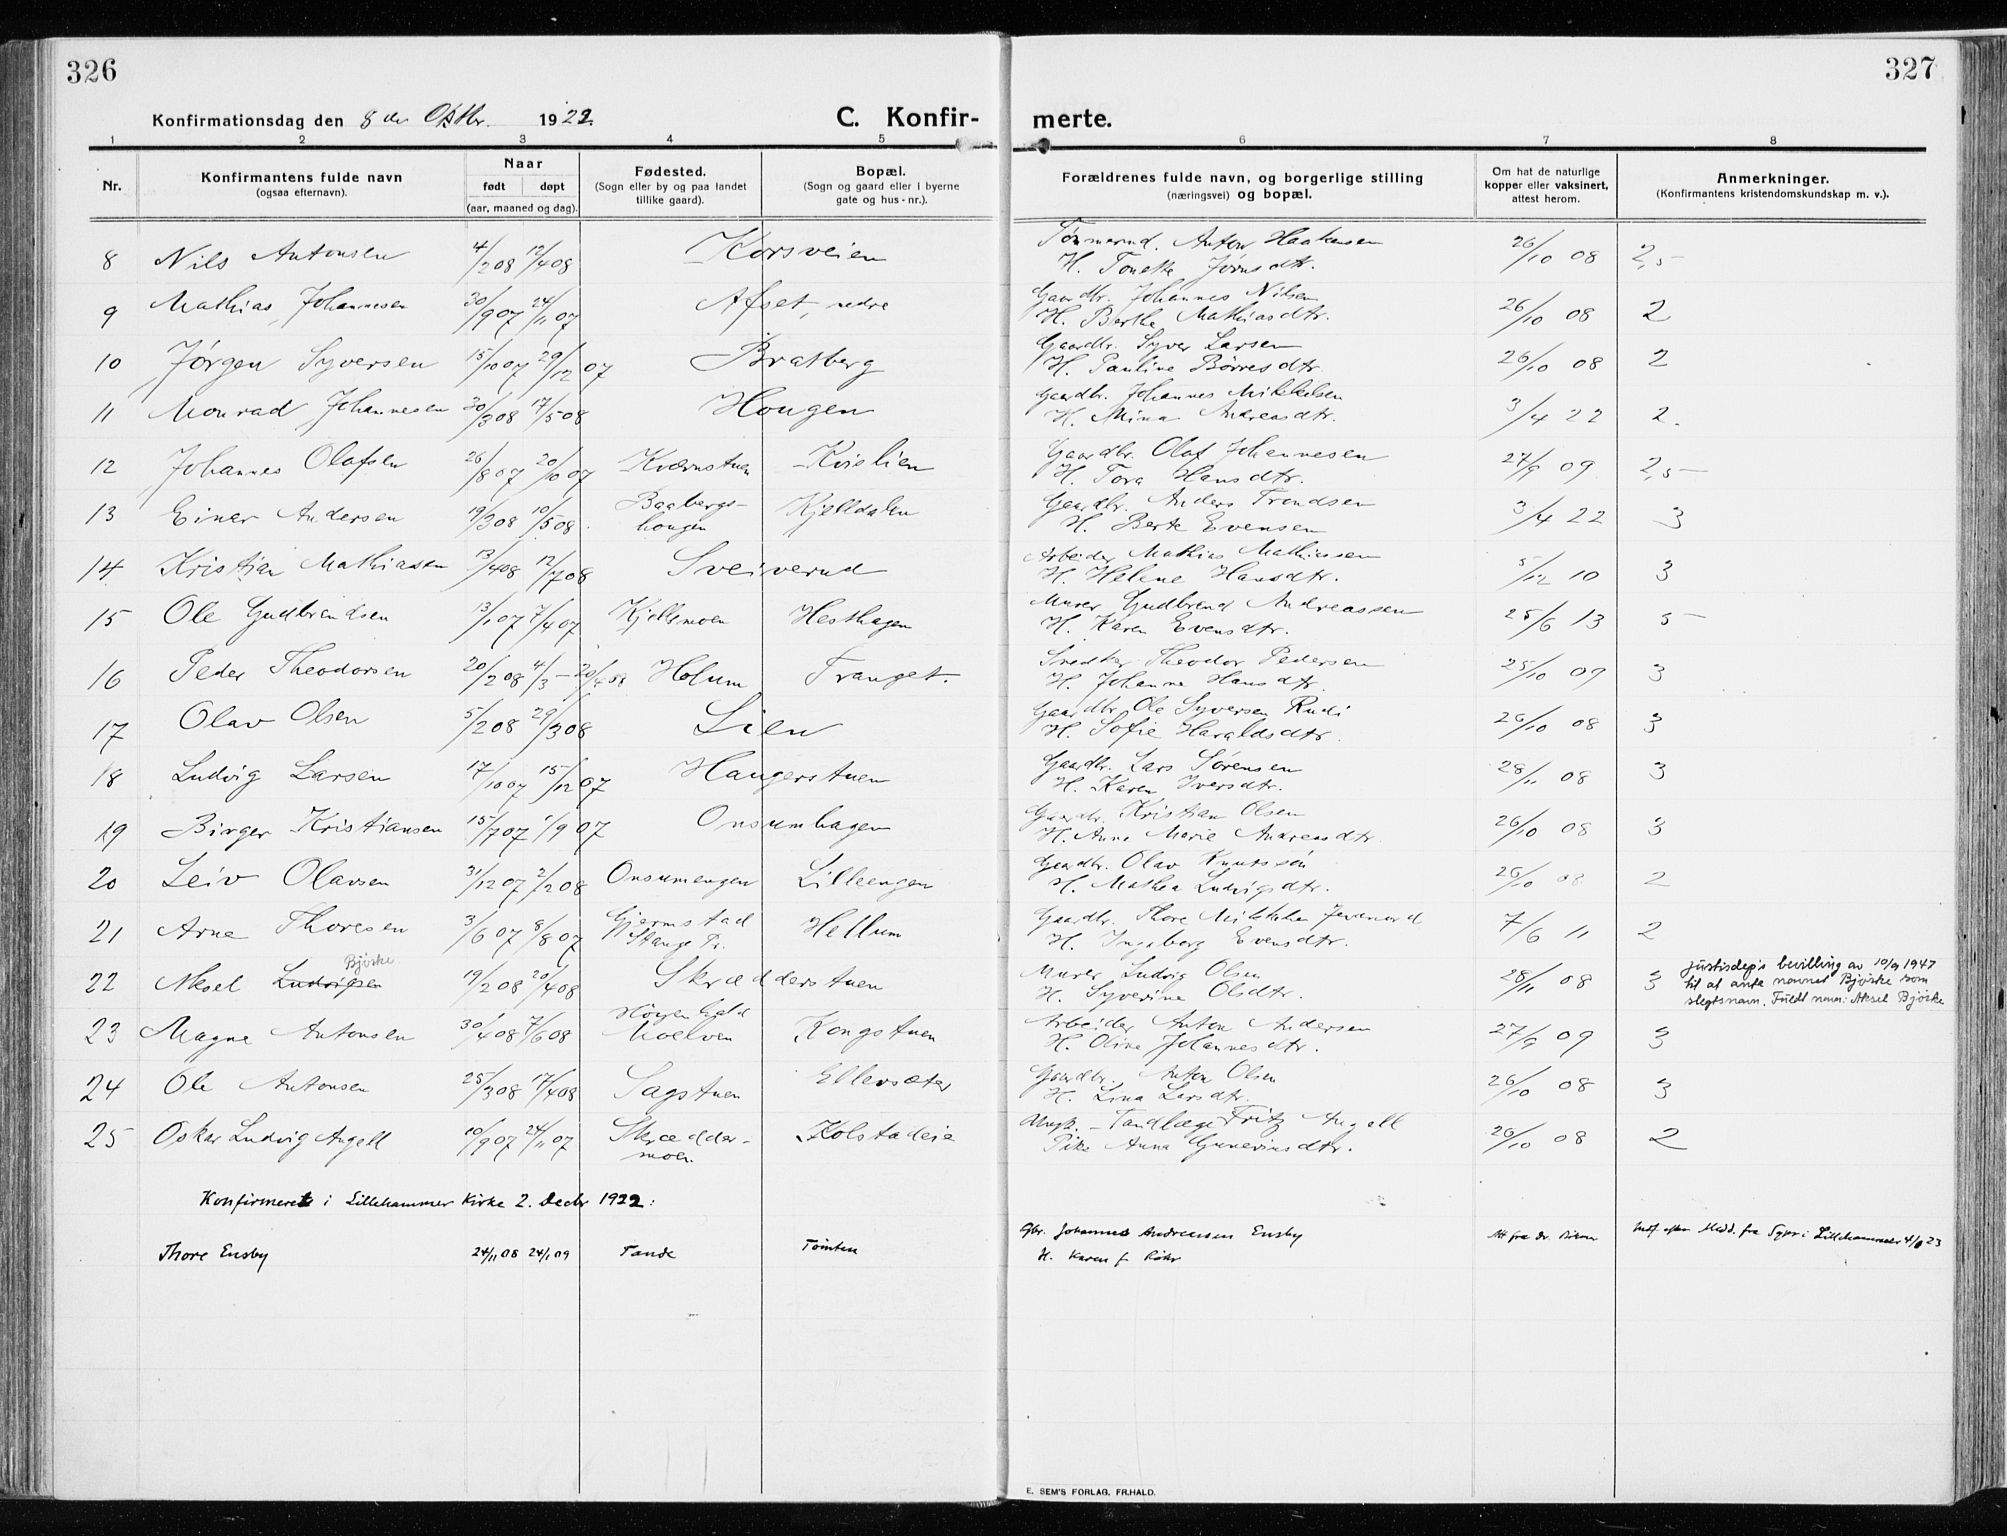 326
327
Konfirmationsdag den 8 de Oktbr. 1922.
C. Konfir-
merte.
1 2 3 4 5 6 7 8
Nr.
Konfirmantens fulde navn
(ogsaa efternavn).
Naar
født døpt
(aar, maaned og dag).
Fødested.
(Sogn eller by og paa landet
tillike gaard).
Bopæl.
(Sogn og gaard eller i byerne
gate og hus-nr.).
Forældrenes fulde navn, og borgerlige stilling
(næringsvei) og bopæl.
Om hat de naturlige
kopper eller vaksinert,
attest herom.
Anmerkninger.
(Konfirmantens kristendomskundskap m. v.).
8 Nils Antonsen 4/2 08 12/4 08 Korsveien Tømmermd. Anton Haakensen 26/10 08 2,5
H. Tonette Jørnsdtr.
9 Mathias Johannesen 30/9 07 24/11 07 Afset, nedre Gaardbr. Johannes Nilsen 26/10 08 2
H. Berthe Mathiasdtr.
10 Jørgen Syversen 15/10 07 29/12 07 Bratberg Gaardbr. Syver Larsen 26/10 08 2
H. Pauline Børresdtr.
11 Monrad Johannesen 30/3 08 17/5 08 Hougen Gaardbr. Johannes Mikkelsen 3/4 22 2.
H. Mina Andreasdtr.
12 Johannes Olafsen 26/8 07 20/10 07 Kværnstuen Kvislien Gaardbr. Olaf Johannesen 27/9 09 2,5
H. Tora Hansdtr.
13 Einar Andersen 19/3 08 10/5 08 Baabergs- Kjelldalen Gaardbr. Anders Trondsen 3/4 22 3
hougen H. Berte Evensen
14 Kristian Mathiasen 13/4 08 12/7 08 Sveiverud Arbeider Mathias Mathiassen 5/12 10 3
H. Helene Hansdtr.
15 Ole Gudbrandsen 13/1 07 7/4 07 Kjellemoen Hesthagen Murer Gudbrand Andreassen 25/6 13 5
H. Karen Evensdtr.
16 Peder Theodorsen 20/2 08 4/3 – 20/4 08 Holum Tranget. Snedker Theodor Pedersen 25/10 09 3
H. Johanne Hansdtr.
17 Olav Olsen 5/2 08 29/3 08 Lien Gaardbr. Ole Syversen Rudi 26/10 08 3
H. Sofie Haraldsdtr.
18 Ludvig Larsen 17/10 07 15/12 07 Haugerstuen Gaardbr. Lars Sørensen 28/11 08 3
H. Karen Iversdtr.
19 Birger Kristiansen 15/7 07 1/9 07 Onsumhagen Gaardbr. Kristian Olsen 26/10 08 3
H. Anna Marie Andreasdtr.
20 Leiv Olavsen 31/12 07 2/2 08 Onsumengen Lilleengen Gaardbr. Olav Knutssøn 26/10 08 2
H. Mathea Ludvigsdtr.
21 Arne Thoresen 3/6 07 8/8 07 Gjermstad Hellum Gaardbr. Thore Mikkelsen 7/6 11 2
Stange Pr. H. Ingeborg Evensdtr.
Bjørke
22 Aksel Ludvigsen 19/2 08 20/4 08 Skrædderstuen Murer Ludvig Olsen 28/11 08 3 Justisdep's bevilling av 10/9 1947
H. Syverine Olsdtr. til at anta navnet Bjørke som
slegtsnavn. Fuldt navn: Aksel Bjørke
23 Magne Antonsen 30/4 08 7/6 08 Moelven Kongstuen Arbeider Anton Andersen 27/9 09 3
H. Oline Johannesdtr.
24 Ole Antonsen 25/3 08 17/4 08 Sagstuen Ellevsæter Gaardbr. Anton Olsen 26/10 08 3
H. Lina Larsdtr.
25 Oskar Ludvig Angell 10/9 07 24/11 07 Skrædder- Kolstadeie Ungk. – Tandlæge Fritz Angell 26/10 08 2
moen Pike Anna Guneriusdtr.
Konfirmeret i Lillehammer Kirke 2. Decbr 1922:
Thore Ensby 24/11 08 24/1 09 Tande Tomten Gbr. Johannes Andreasen Ensby Att fra dr. Indf. efter Medd. fra Spr i Lillehammer 4/6 23
H. Karen f. Røhr
E. SEM'S FORLAG, FR.HALD.